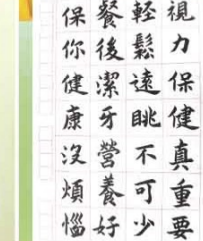 視力保健真重要
輕鬆遠眺不可少
餐後潔牙營養好
保你健康沒煩惱